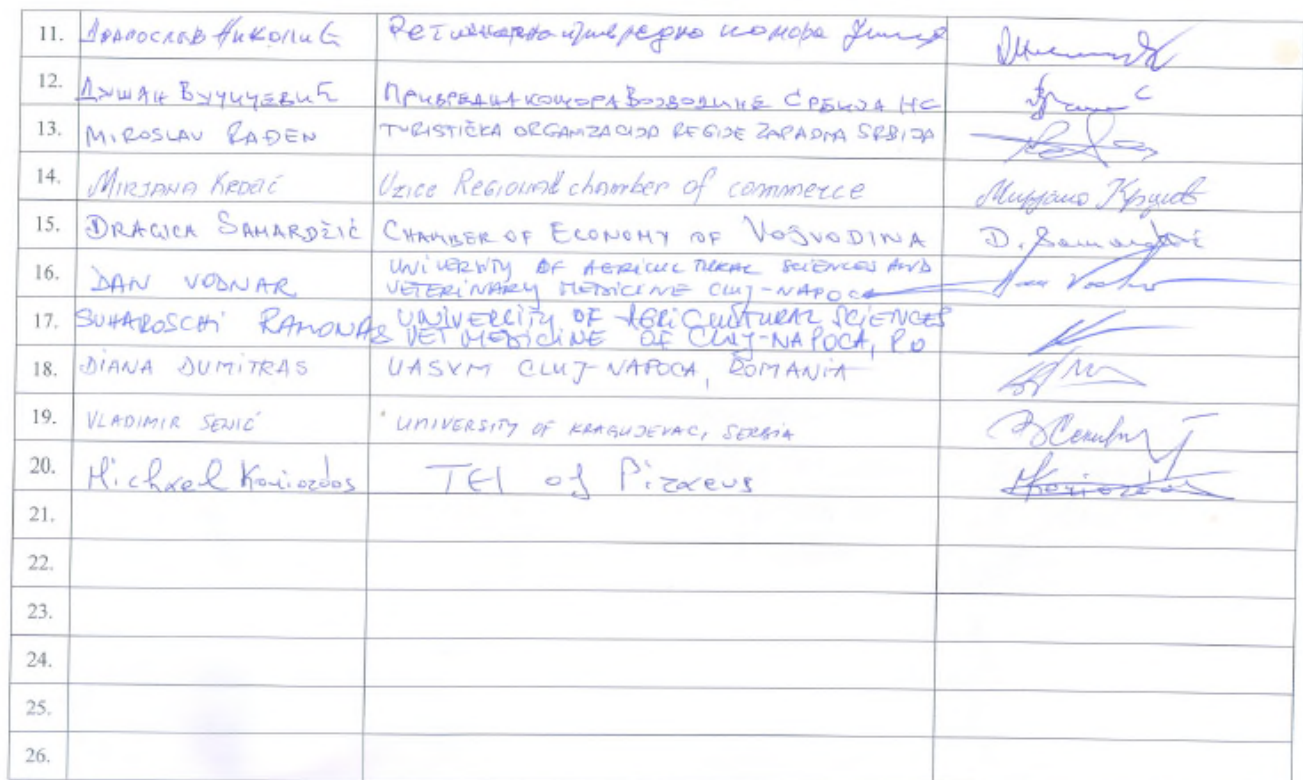 11. Драгослав Николић Регионална привредна комора Ужице
12. Душан Вучићевић ПРИВРЕДНА КОМОРА ВОЈВОДИНЕ СРБИЈА НС
13. MIROSLAV RAĐEN TURISTIČKA ORGANIZACIJA REGIJE ZAPADNA SRBIJA
14. MIRJANA KRDŽIĆ Uzice Regional chamber of commerce
15. DRAGICA SAMARDŽIĆ CHAMBER OF ECONOMY OF VOJVODINA D. Samardžić
16. DAN VODNAR UNIVERSITY OF AGRICULTURAL SCIENCES AND
VETERINARY MEDICINE CLUJ-NAPOCA Dan Vodnar
17. SUHAROSCHI RAMONA UNIVERSITY OF AGRICULTURAL SCIENCES
& VET MEDICINE OF CLUJ-NAPOCA, RO
18. DIANA DUMITRAS UASVM CLUJ-NAPOCA, ROMANIA
19. VLADIMIR SENIĆ UNIVERSITY OF KRAGUJEVAC, SERBIA
20. Michael Koniordos TEI of Piraeus
21.
22.
23.
24.
25.
26.